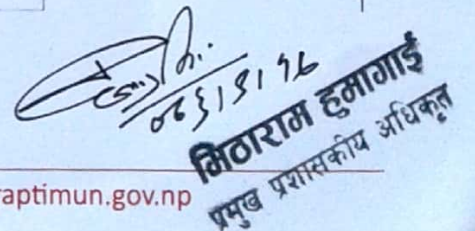 मिठाराम हुमागाई
प्रमुख प्रशासकीय अधिकृत
raptimun.gov.np